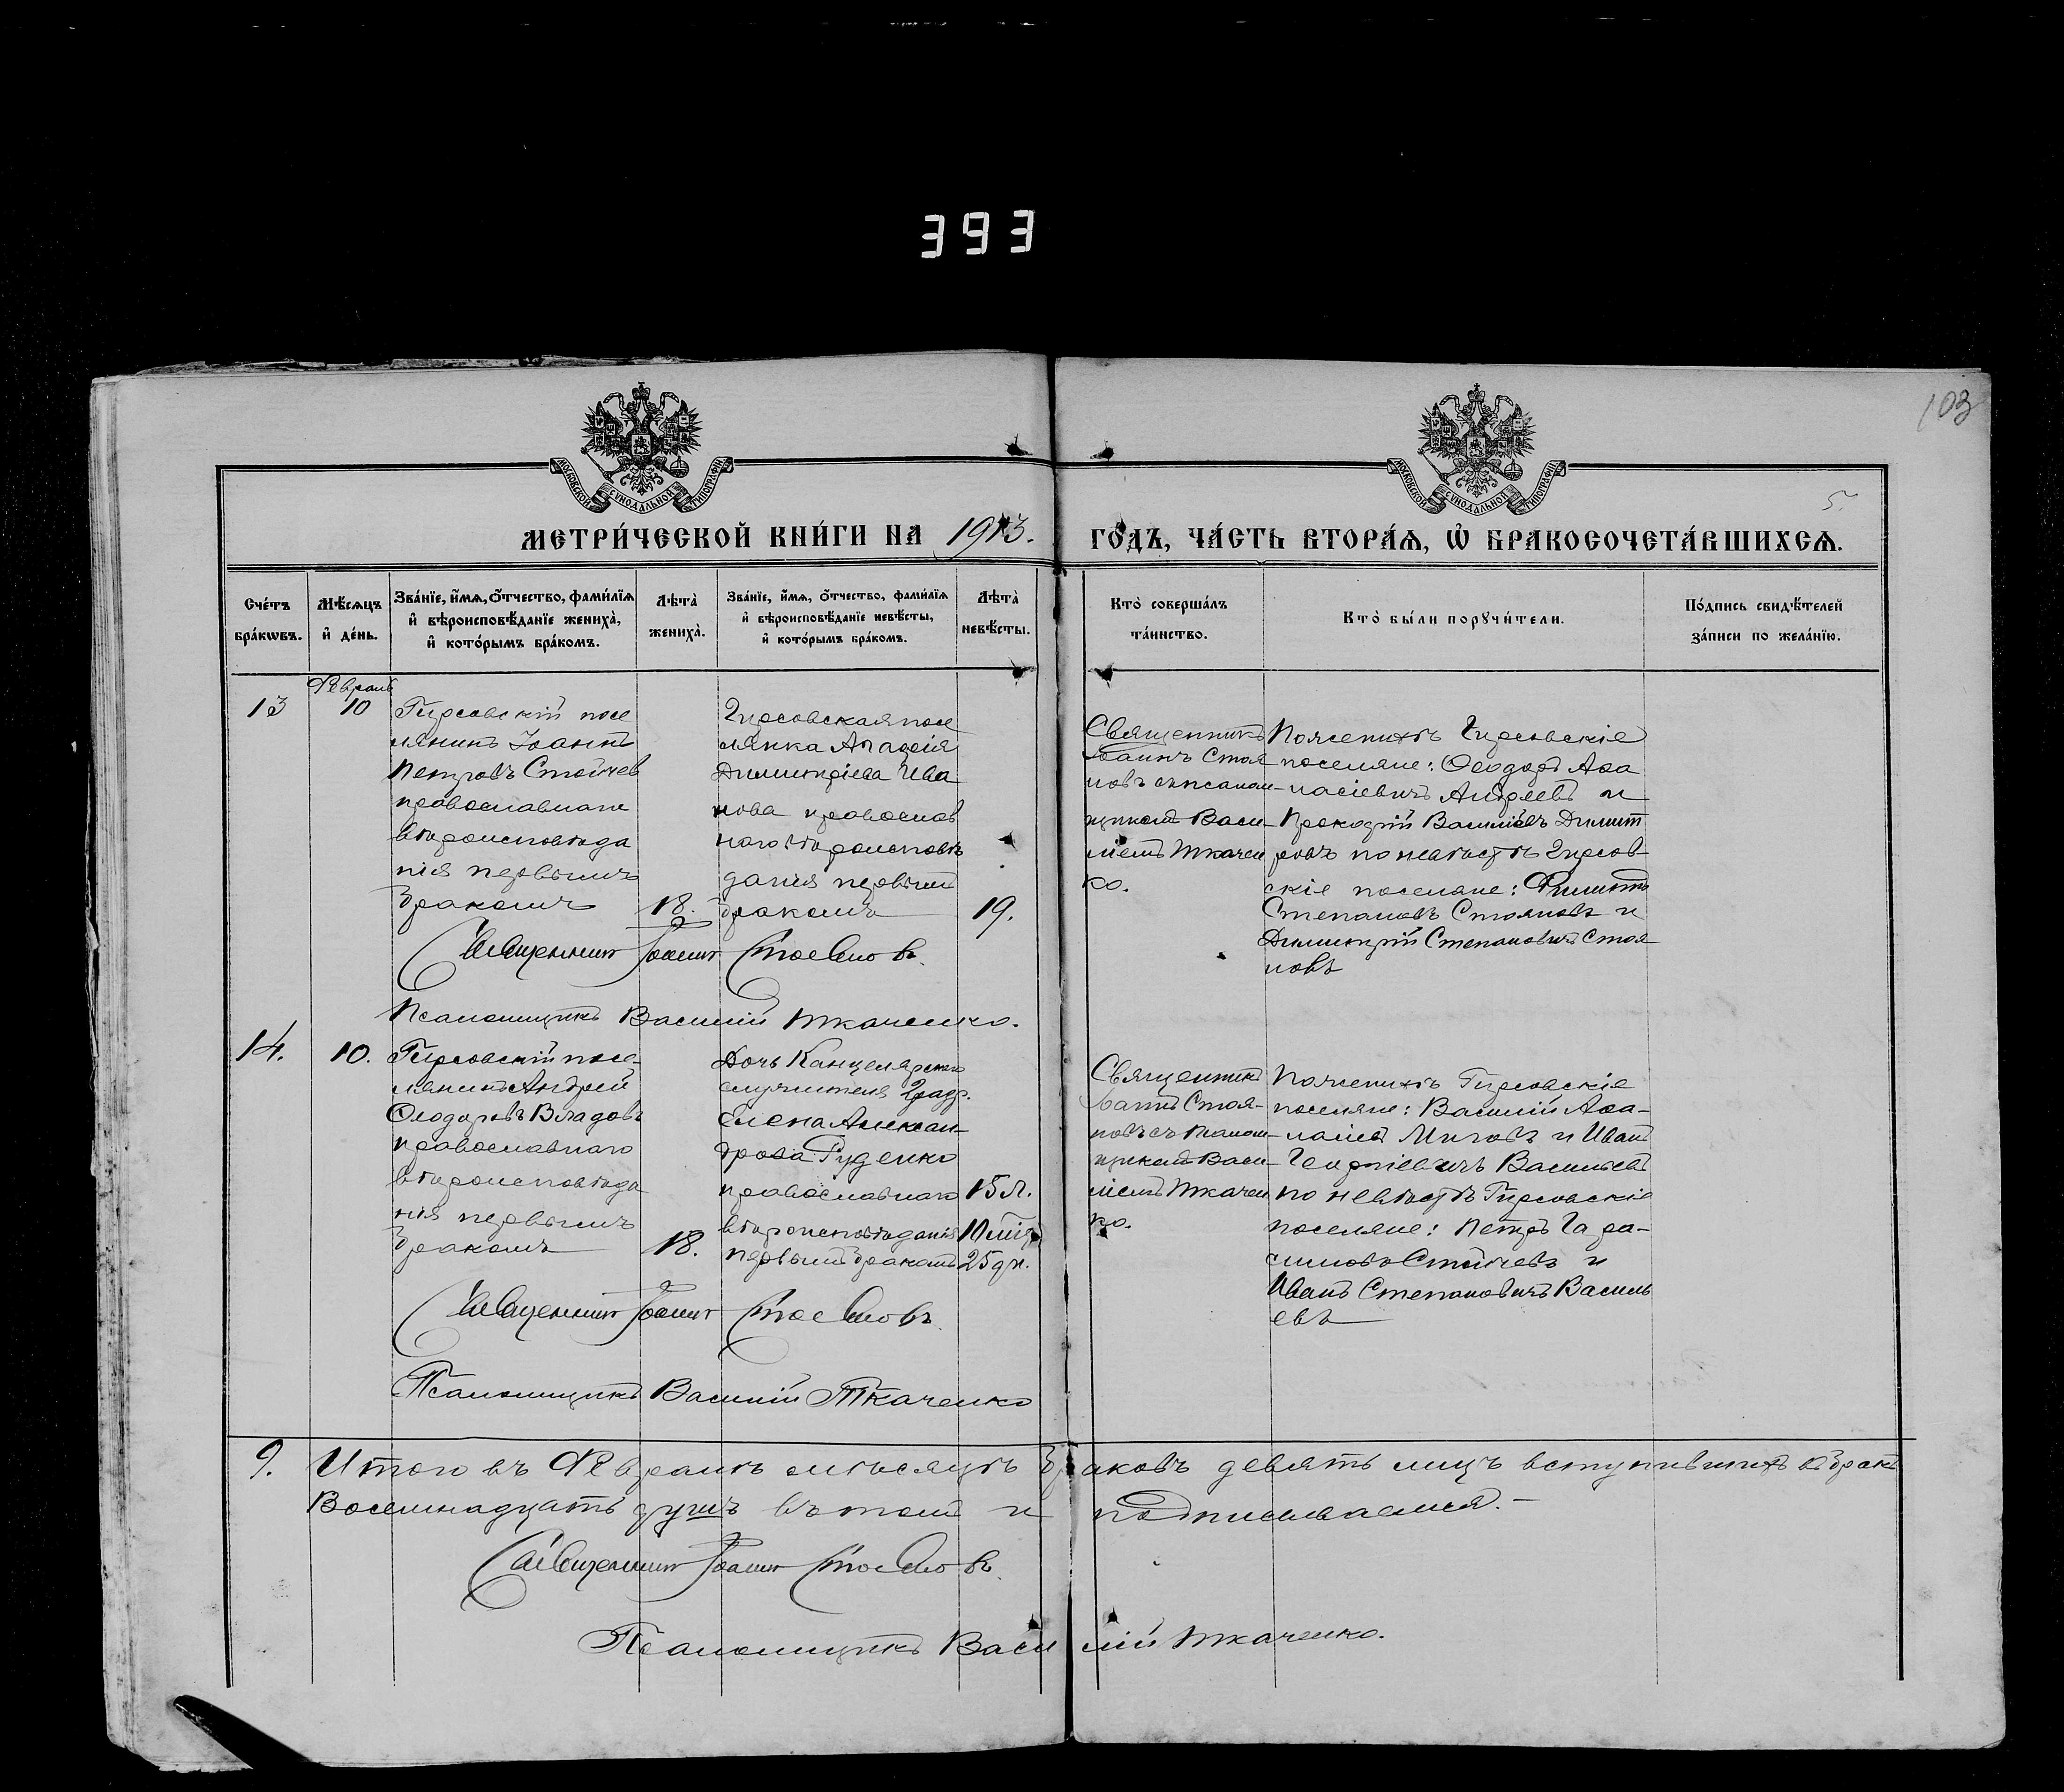 393
103
5.
МОСКОВСКОЙ СѴНОДАЛЬНОЙ ТИПОГРАФІИ
МОСКОВСКОЙ СѴНОДАЛЬНОЙ ТИПОГРАФІИ
МЕТРИ́ЧЕСКОЙ КНИ́ГИ НА 1913. ГО́ДЪ, ЧА́СТЬ ВТОРА́Ѧ, Ѡ҆ БРАКОСОЧЕТА́ВШИХСѦ.
Сче́тъ
бра́кѡвъ.
Мѣ́сѧцъ
и҆ де́нь.
Зва́нїе, и҆́мѧ, ѻ҆́тчество, фами́лїѧ
и҆ вѣроисповѣ́данїе жениха̀,
и҆ кото́рымъ бра́комъ.
Лѣта̀
жениха̀.
Зва́нїе, и҆́мѧ, ѻ҆́тчество, фами́лїѧ
и҆ вѣроисповѣ́данїе невѣ́сты,
и҆ кото́рымъ бра́комъ.
Лѣта̀
невѣ́сты.
Кто̀ соверша́лъ
та́инство.
Кто̀ бы́ли порꙋчи́тели.
По́дпись свидѣ́телей
за́писи по жела́нїю.
13
Февраль
10
Гирсовскій посе
лянинъ Іоаннъ
Петровъ Стойчев
православнаго
вѣроисповѣда
нія первымъ
бракомъ
18.
Гирсовская посе
лянка Агаѳія
Димитріева Ива
нова православ
наго вѣроисповѣ
данія первымъ
бракомъ
19.
Священникъ
Іоаннъ Стоя
новъ съ псалом-
щикомъ Васи-
ліемъ Ткачен
ко.
По женихѣ Гирсовскіе
поселяне: Ѳеодоръ Аѳа
насіевичъ Андреевъ и
Прокофій Василіевъ Димит
ровъ по невѣстѣ Гирсов-
скіе поселяне: Филиппъ
Степановъ Стояновъ и
Димитрій Степановичъ Стоя
новъ
Священникъ Іоаннъ Стояновъ.
Псаломщикъ Василій Ткаченко.
14.
10.
Гирсовскій посе-
лянинъ Андрей
Ѳеодоровъ Владовъ
православнаго
вѣроисповѣда
нія первымъ
бракомъ
18.
Дочь Канцелярскаго
служителя
Елена Алексан-
дрова Руденко
православнаго
вѣроисповѣданія
первымъ бракомъ
15 л.
10 мѣс.
25 дн.
Священникъ
Іоаннъ Стоя-
новъ съ псалом-
щикомъ Васи-
ліемъ Ткачен
ко.
По женихѣ Гирсовскіе
поселяне: Василій Аѳа-
насіев Митовъ и Иванъ
Георгіевичъ Васильевъ
по невѣстѣ Гирсовскіе
поселяне: Петръ Гара-
симовъ Стойчевъ и
Иванъ Степановичъ Василь
евъ
Священникъ Іоаннъ Стояновъ.
Псаломщикъ Василій Ткаченко
9. Итого въ Февралѣ мѣсяцѣ браковъ девять лицъ вступившихъ въ бракъ
Восемнадцать душъ въ томъ и подписываемся.-
Священникъ Іоаннъ Стояновъ.
Псаломщикъ Василій Ткаченко.